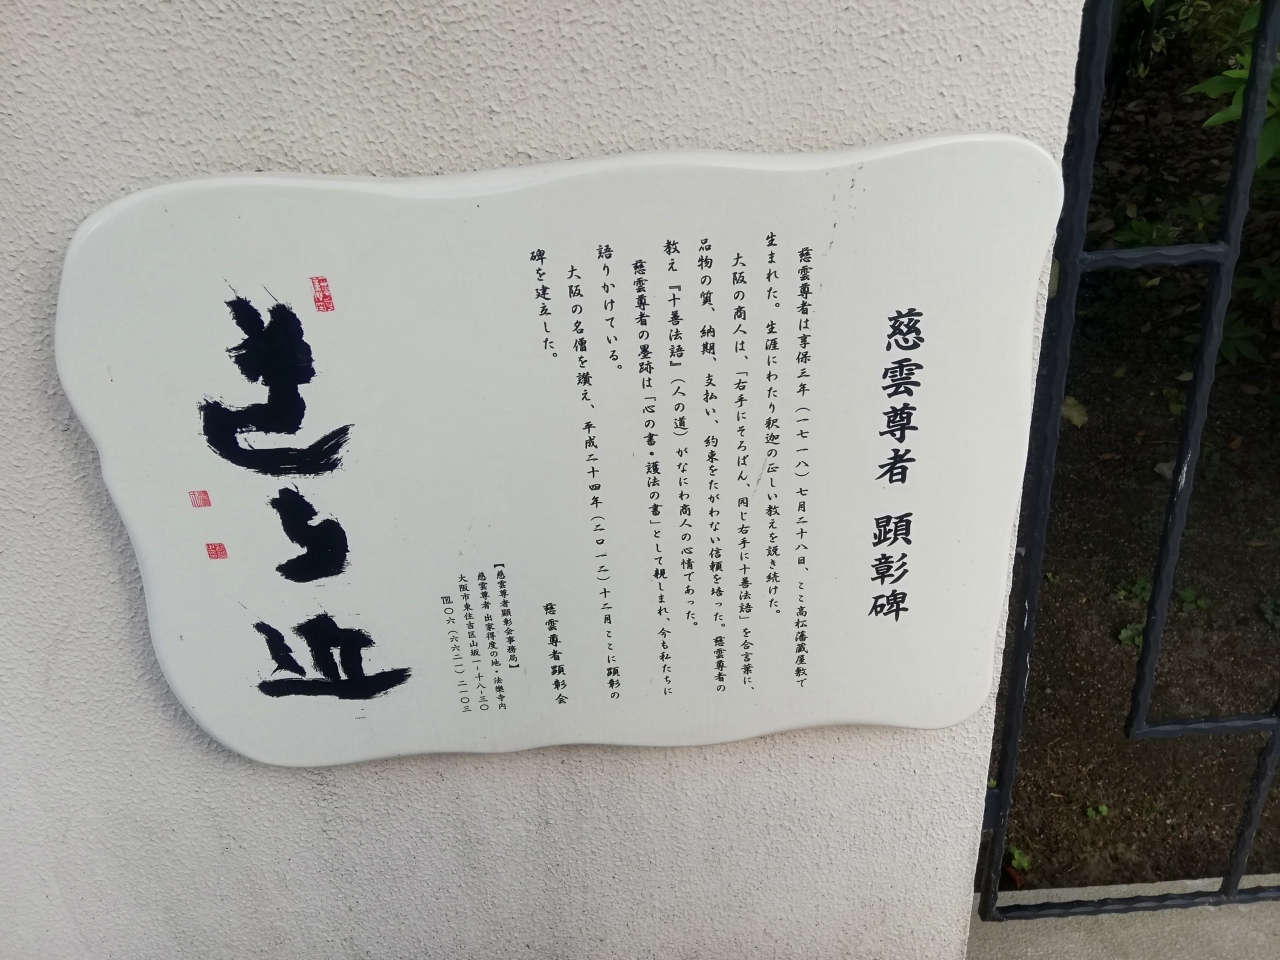 慈雲尊者 顕彰碑
慈雲尊者は享保三年（一七一八）七月二十八日、ここ高松藩蔵屋敷で
生まれた。生涯にわたり釈迦の正しい教えを説き続けた。
大阪の商人は、「右手にそろばん、同じ右手に十善法語」を合言葉に、
品物の質、納期、支払い、約束をたがわない信頼を培った。慈雲尊者の
教え『十善法語』（人の道）がなにわ商人の心情であった。
慈雲尊者の墨跡は「心の書・護法の書」として親しまれ、今も私たちに
語りかけている。
大阪の名僧を讃え、平成二十四年（二〇一二）十二月ここに顕彰の
碑を建立した。
慈雲尊者顕彰会
【慈雲尊者顕彰会事務局】
慈雲尊者 出家得度の地・法樂寺内
大阪市東住吉区山坂一ー十八ー三〇
℡〇六（六六二一）二一〇三